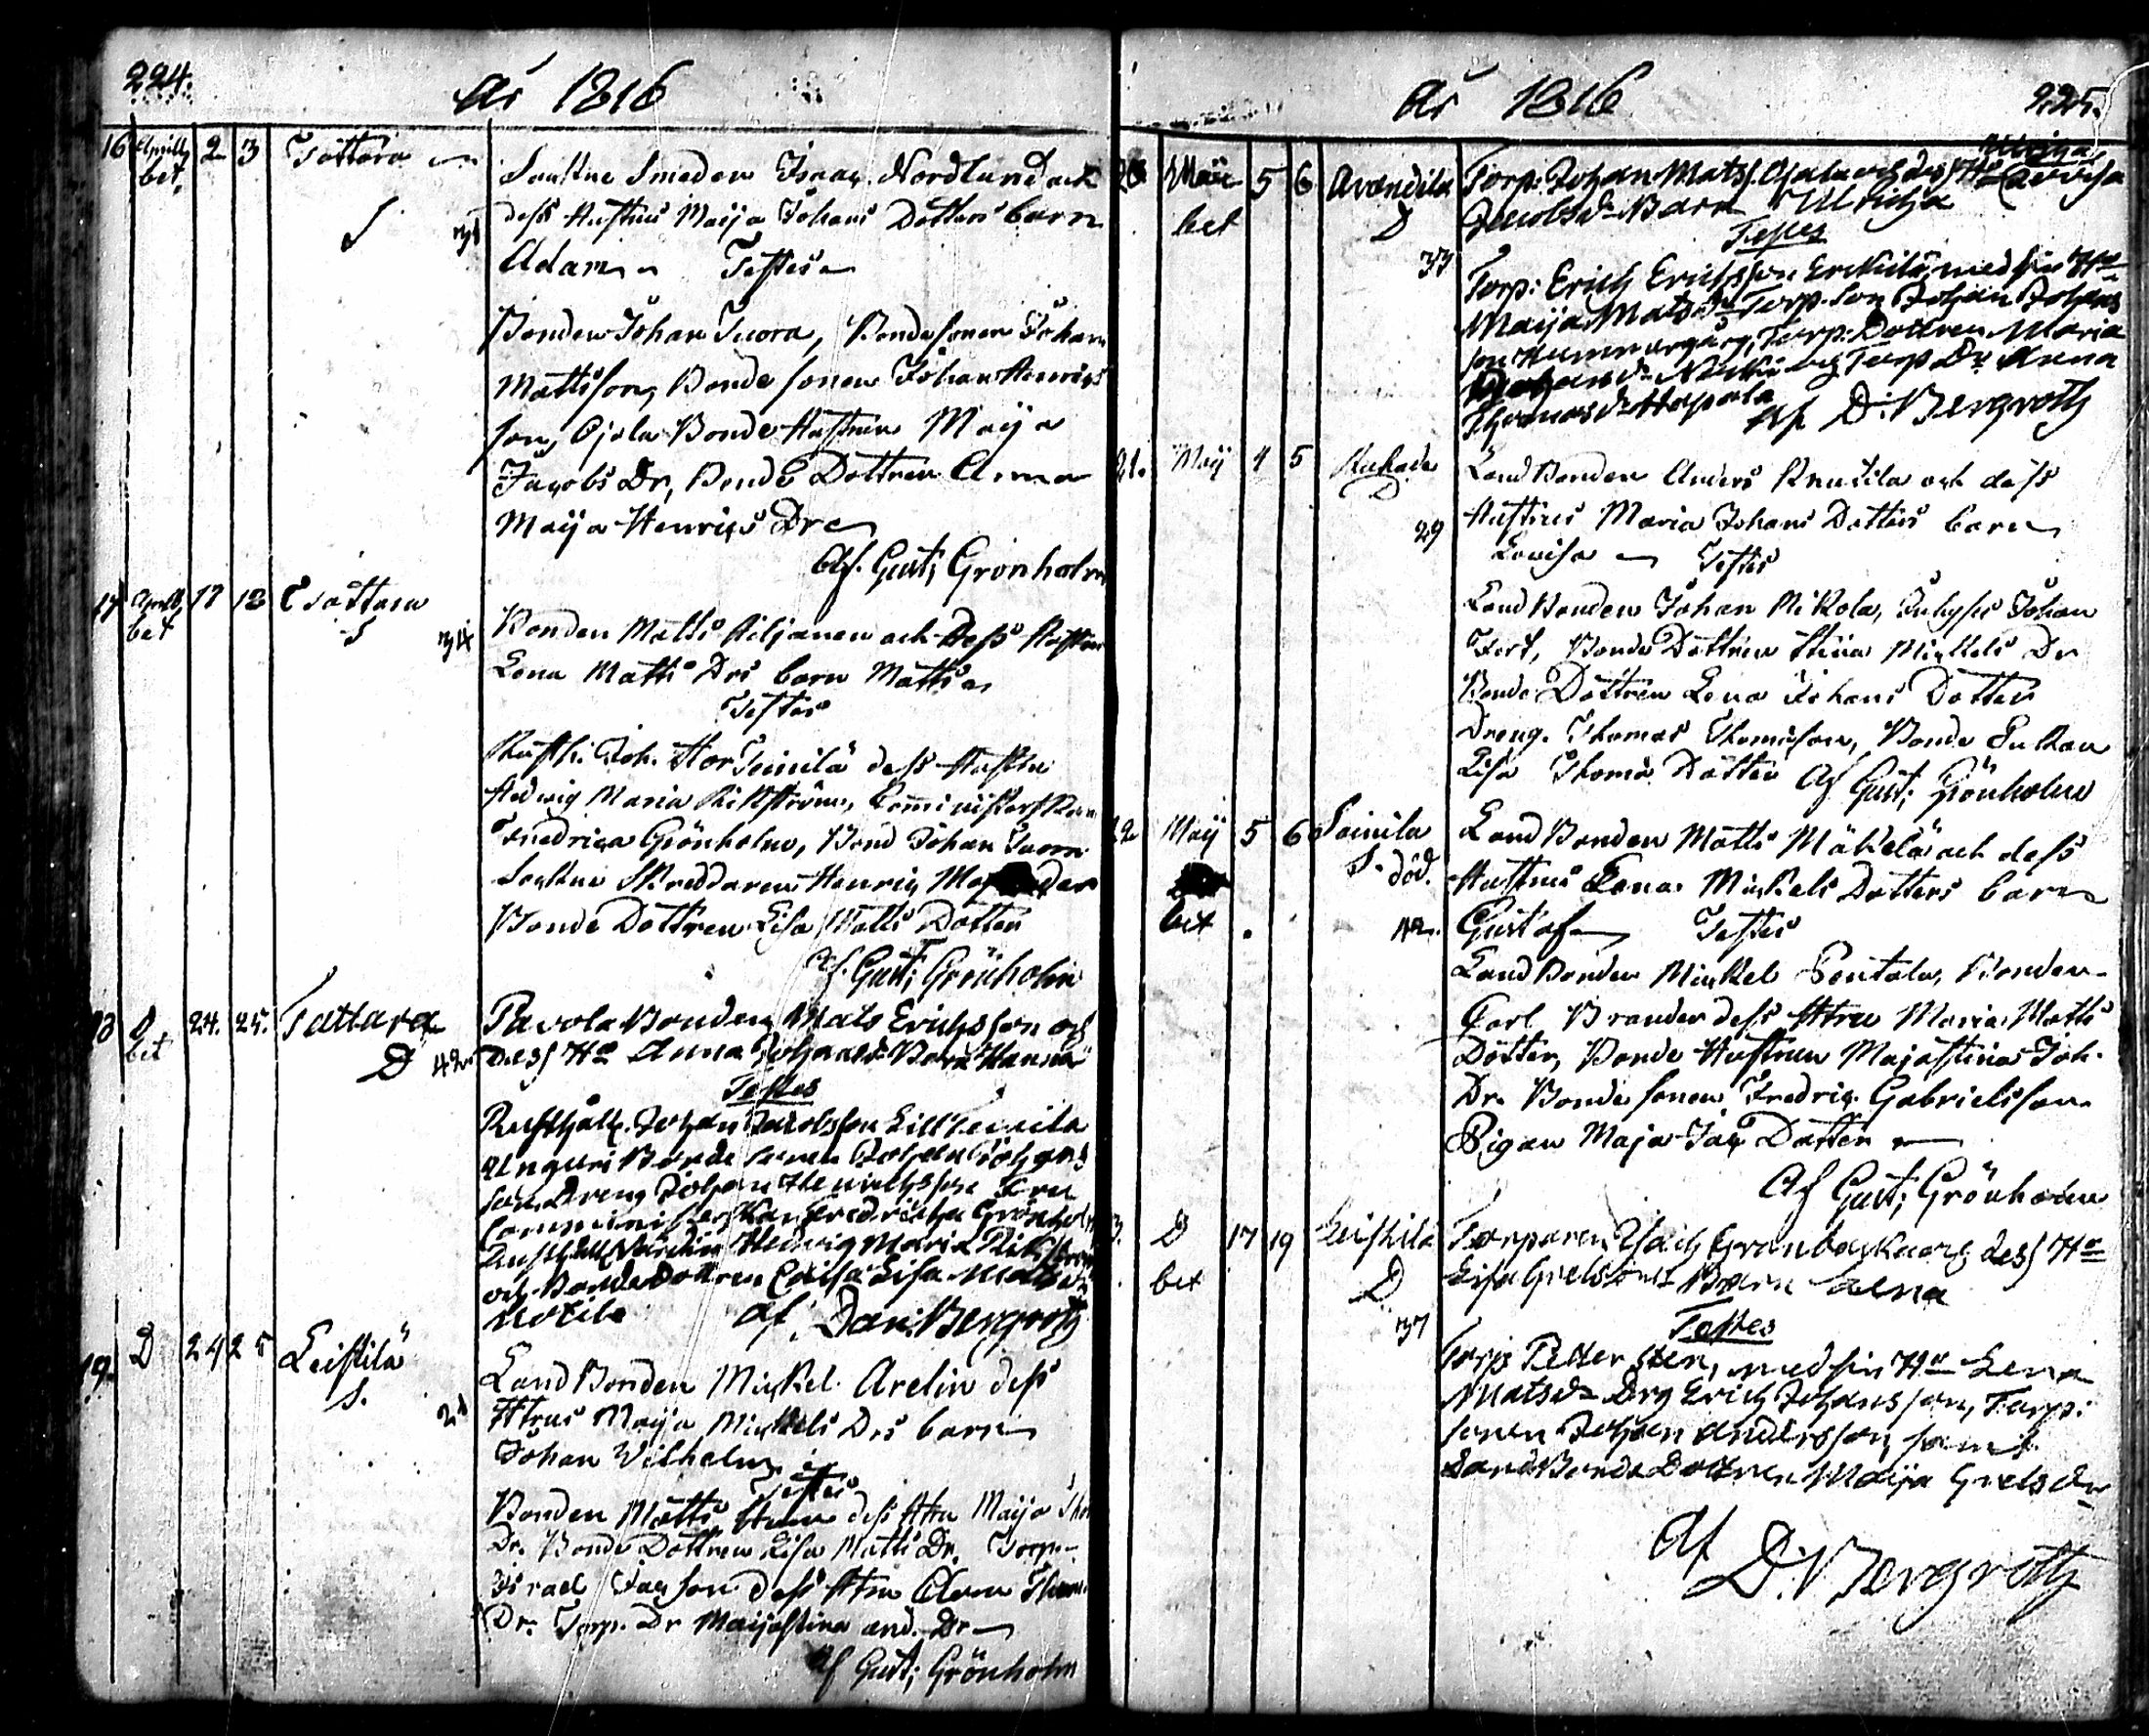 224.
år 1816
16 Aprill 2 3 Tattara
bet.
S 31
Sockne Smeden Isaac Nordlund och
dess Hustrus Maija Johans Dotters barn
Adam Testes
Bonden Johan Tuora, Bondesonen Johan
Mattsson, Bonde sonen Johan Henrics
son, Ojala Bonde Hustrun Maija
Jacobs Dr, Bonde Dottren Anna
Maija Henrics Dr
Af. Gust; Grönholm
17 Aprill 17 18 Tattara
bet S 34
Bonden Matts Kiljanen och Dess Hustrus
Lena Matts Drs barn Matts
Testes
Rusth. Joh. Stor Teinilä dess Hustru
Hedwig Maria Rikström, Comministerskan
Fredrica Grönholm, Bond Johan Tuora
Sockne Skreddaren Henric
Bonde Dottren Lisa Matts Dotter
af. Gust; Grönholm
18 D. 24. 25. Tattara
bet D 42
Pavola Bonden Mats Erichsson och
dess Ho Anna Barn Hanna
Testes
Rusthåll. Johan Jacobsson Lill Teinilä
Unguri Bonde sonen Johan Johans
son, Dreng Johan Henrichsson Fru
Comministerskan Fredricha Grönholm
Rusthåll Värdin Hedwig Maria Rikström
och Bonde Dottren Caisa Lisa Matsdr
af, Dan: Bergroth
19. D 24 25 Leistilä
S. 21
Land Bonden Mickel Arelin dess
Htrus Maija Mickels Drs barn
Johan Wilhelm
Testes
Bonden Matts dess Htru Maija Tho
Dr. Bonde Dottren Lisa Matts Dr, Torp.
Israel Jacson dess Htru
Dr. Torp. Dr Maijastina And. Dr
Af Gust; Grönholm
år 1816
225.
Ulricha
20 Maii 5 6 Arandila
bet D
37
Torp: Johan Mats. Ojala och dess Ho Lovisa
Jacobsdr Barn Ulricha
Testes
Torp: Erich Erichsson Erkkilä, med sin Ho
Maija Matsdr Torp. Son Johan Johans
son Hammargård, Torp: Dottren Maria
och Torp Dr Anna
Thomasdr Haapala
Af D: Bergroth
21. Maij 4 5
D
29
Land Bonden Anders Knuutila och dess
Hustrus Maria Johans Dotters barn
Lovisa Testes
Land Bonden Johan Mikola, Inhyses Johan
Fort, Bonde Dottren Stina Mickels Dr
Bonde Dottren Lena Johans Dotter
Dreng. Thomas Thomasson, Bonde Enkan
Lisa Thoma Dotter Af Gust; Grönholm
22 Maij 5 6 Soinila
S. död.
bet 42.
Land Bonden Matts Mäkelä och dess
Hustrus Lena Mickels Dotters barn
Gustaf Testes
Land Bonden Mickel Pentala, Bonden
Carl Brander dess Htru Maria Matts
Dotter, Bonde Hustrun Majastina Joh.
Dr. Bonde sonen Fredric Gabrielsson
Pigan Maja Jac Dotter
Af Gust; Grönholm
D 17 19 Leistilä
bet D
37
Torparen Isach Granbacka och dess Ho
Lisa Barn Lena
Testes
Torp Petter Sten, med sin Ho Lena
Matsdr Drg Erich Johansson, Torp:
sonen Johan Andersson samt
Land Bonde Dottren Maija Grelsdr
Af
D: Bergroth